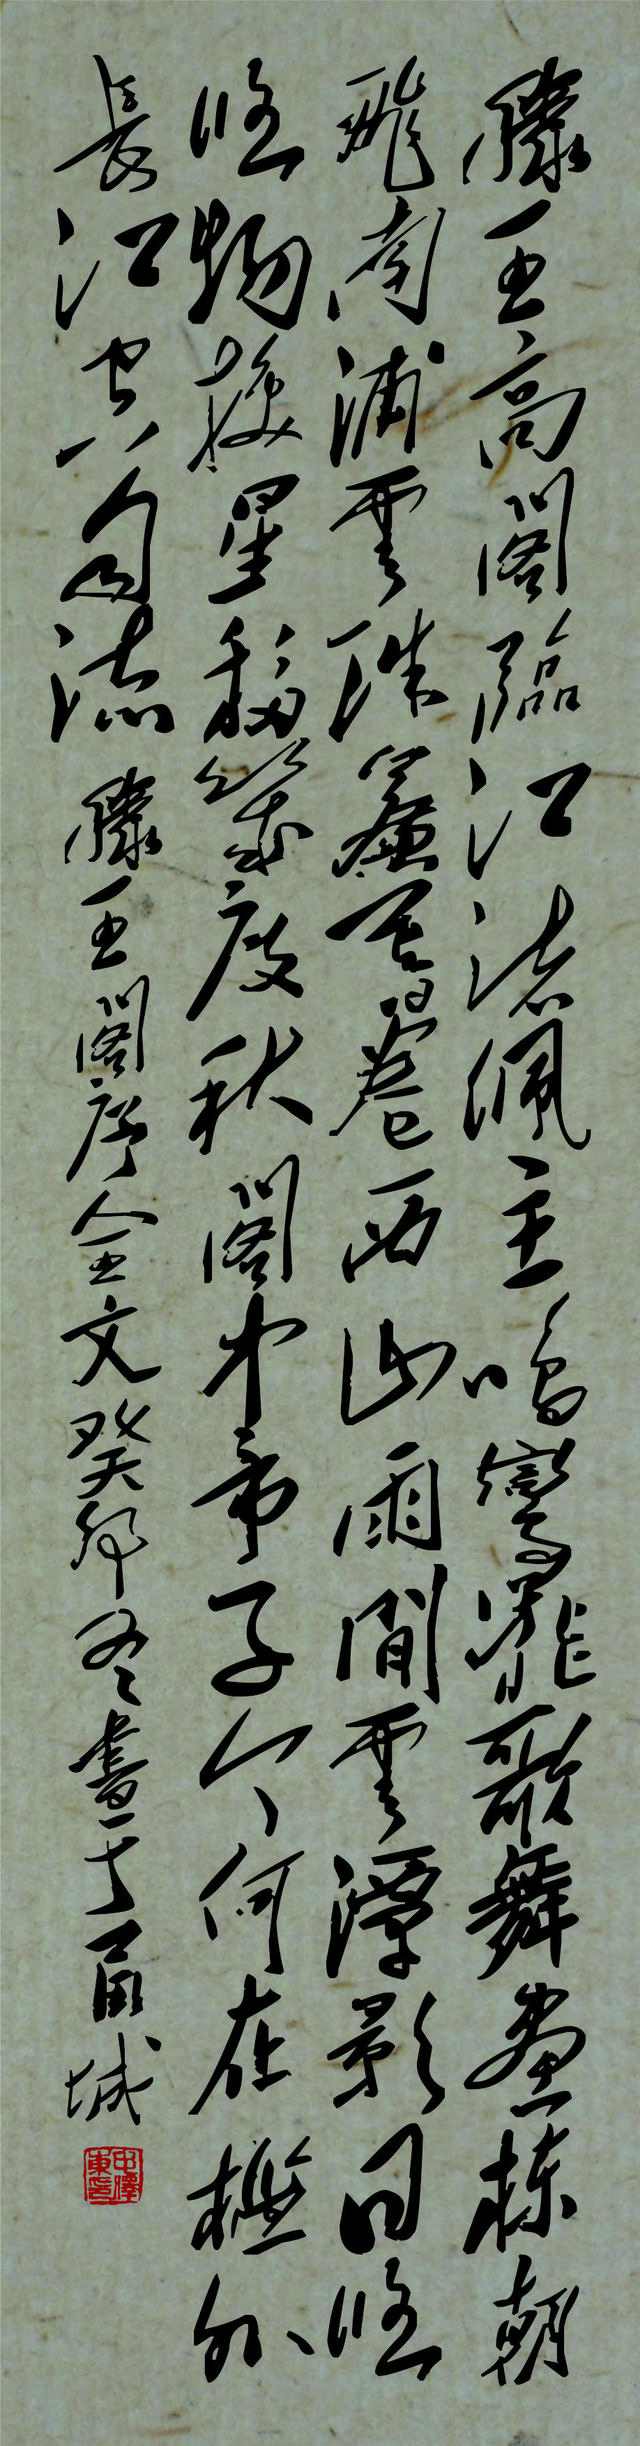 滕王高閣臨江渚佩玉鳴鸞罷歌舞畫棟朝
飛南浦雲珠簾暮卷西山雨閒雲潭影日悠
悠物換星移幾度秋閣中帝子今何在檻外
長江空自流 滕王閣序全文 癸卯冬書于城
田澤東印